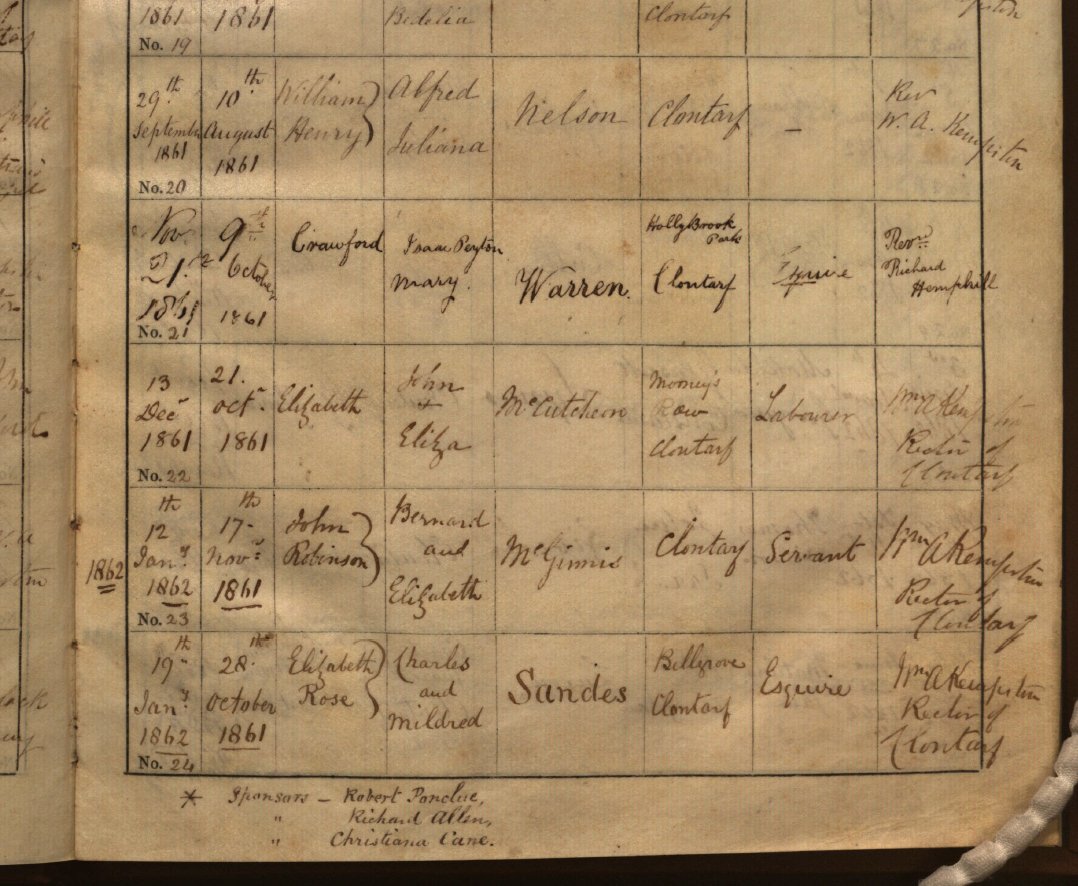 1861 1861 Bedelia Clontarf
No. 19
29th September 1861 10th August 1861 William Henry Alfred Juliana Nelson Clontarf – Rev W. A. Kempston
No. 20
Nov 21st 1861 9th October 1861 Crawford Isaac Peyton Mary. Warren. HollyBrook Park Clontarf Esquire Revd Richard Hemphill
No. 21
13 Decr 1861 21. Octr 1861 Elizabeth John + Eliza McCutcheon Row Clontarf Labourer Wm A Kempston Rector of Clontarf
No. 22
1862 12th Jany 1862 17th Novr 1861 John Robinson Bernard and Elizabeth McGinnis Clontarf Servant Wm A Kempston Rector of Clontarf
No. 23
19th Jany 1862 28th October 1861 Elizabeth Rose Charles and Mildred Sandes Bellgrove Clontarf Esquire Wm A Kempston Rector of Clontarf
No. 24
* Sponsors – Robert
" Richard Allen,
" Christiana Cane.